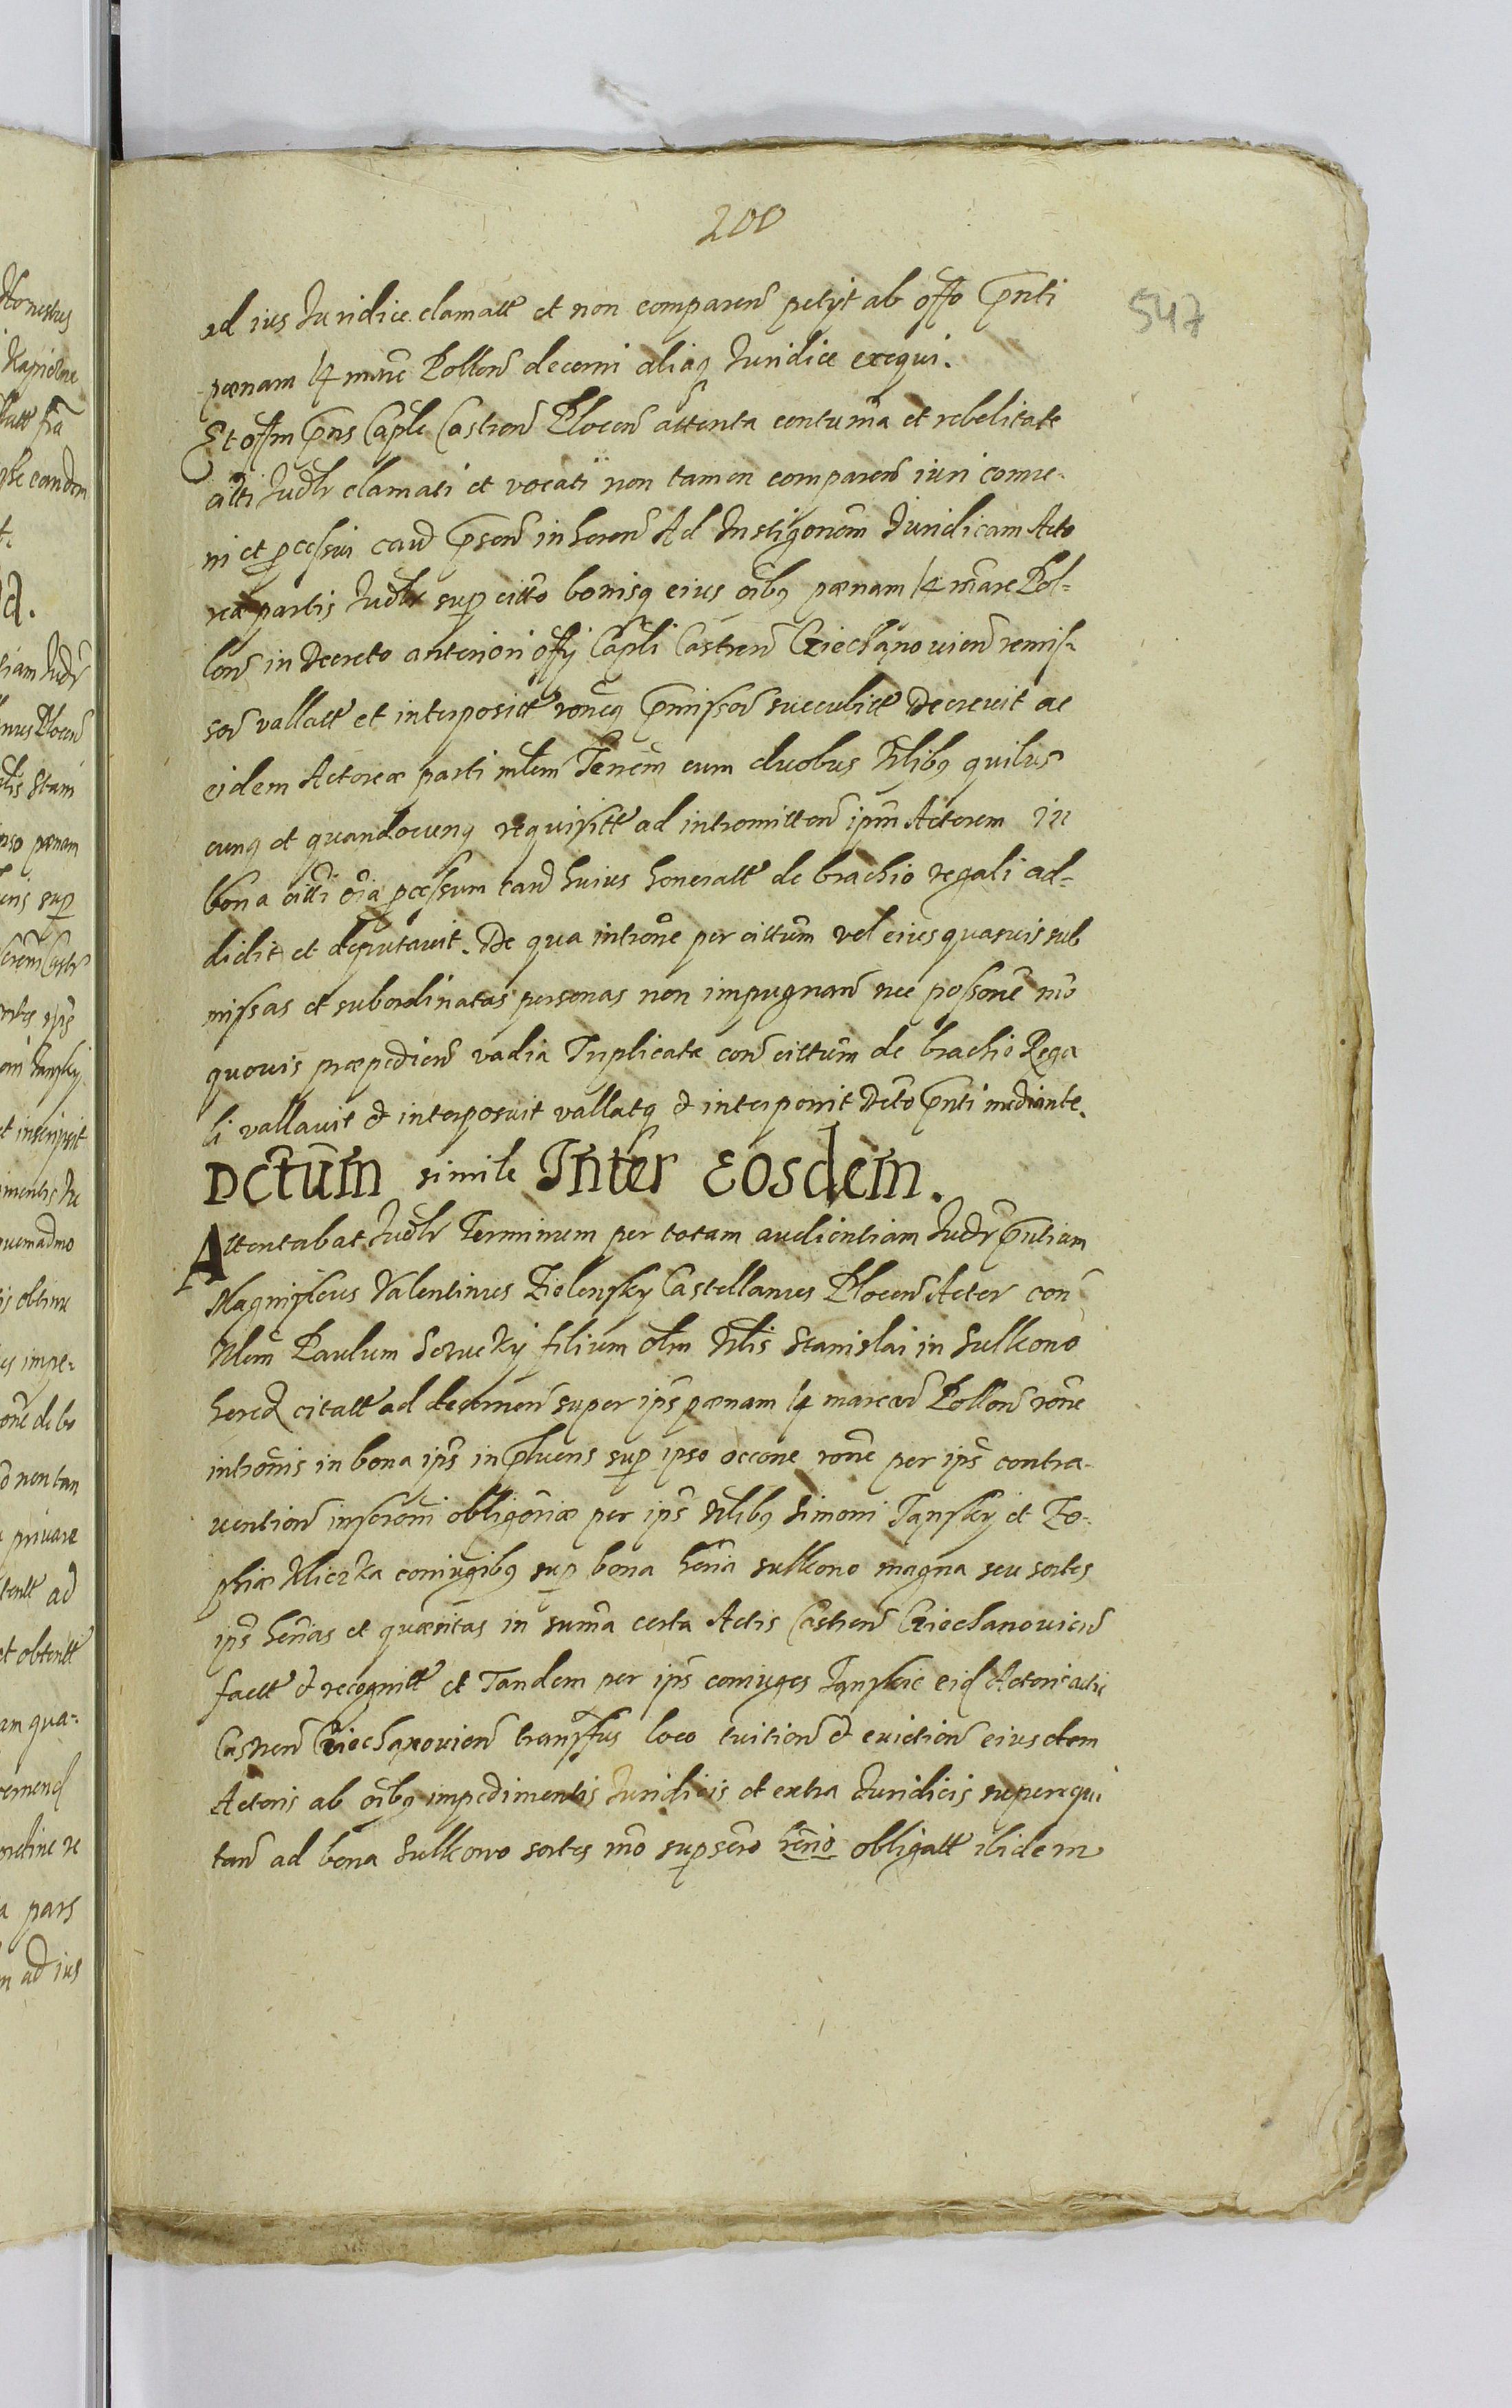 200
547
ad ius Juridice clamatt et non comparen petÿt ab offo pnti
pœnam 14 marc Pollon decerni aliaq Juridice exequi.
Et offm pns Caple Castren Plocen attenta contuma et rebelitate
citti Judlr clamati et vocati non tamen comparen iuri conue-
ni et pcessui caus psen inheren Ad Instigonem Juridicam Acto
reæ partis Judlr sup citto bonisq eius oibq pœnam 14 mare Pol-
lon in Decreto anteriori offÿ Capli Castren Cziechanouien remis-
son vallatt et interposiit roneq pmissor succubitt Decreuit ac
eidem Actoreæ parti mlem Tenem cum duobus Nlibq quibus
cunq et quandocunq requisitt ad intromitten ipm Actorem in
bona citti oia pcessum caus huius honeratt de brachio regali ad-
didit et deputauit. De qua introne per cittum vel eius quasuis sub
missas et subordinatas personas non impugnan nec possone mo
quouis præpedien vadia Triplicata con cittum de brachio Rega
li vallauit et interposuit vallatq et interponit Dcto pnti mediante.
Dctum simile Inter Eosdem.
Attentabat Judlr Terminum per totam audientiam Judr pntium
Magnificus Valentinus Zielensky Castellanus Plocen Actor con
Nlem Paulum Serucky filium olm Nlis Stanislai in Sulkono
hered citatt ad decernen super ips pœnam 14 marcar Pollon rone
intronis in bona ips in pluens sup ipso occone rone per ips contra-
uention inscroni obligoriæ per ips Nlibq Simoni Janskÿ et Zo-
phiæ Mliczka coniugibq sup bona heria sulkono magna seu sortes
ips herias et quæsitas in suma certa Actis Castren Cziechanouien
factt et recognitt et Tandem per ips coniuges Janskie eid Actori actis
Castren Cziechanouien transfus loco tuition et euiction eiusdem
Actoris ab oibq impedimentis Juridicis et extra Juridicis superequi
tan ad bona Sulkowo sortes mo supsero herio obligatt ibidem